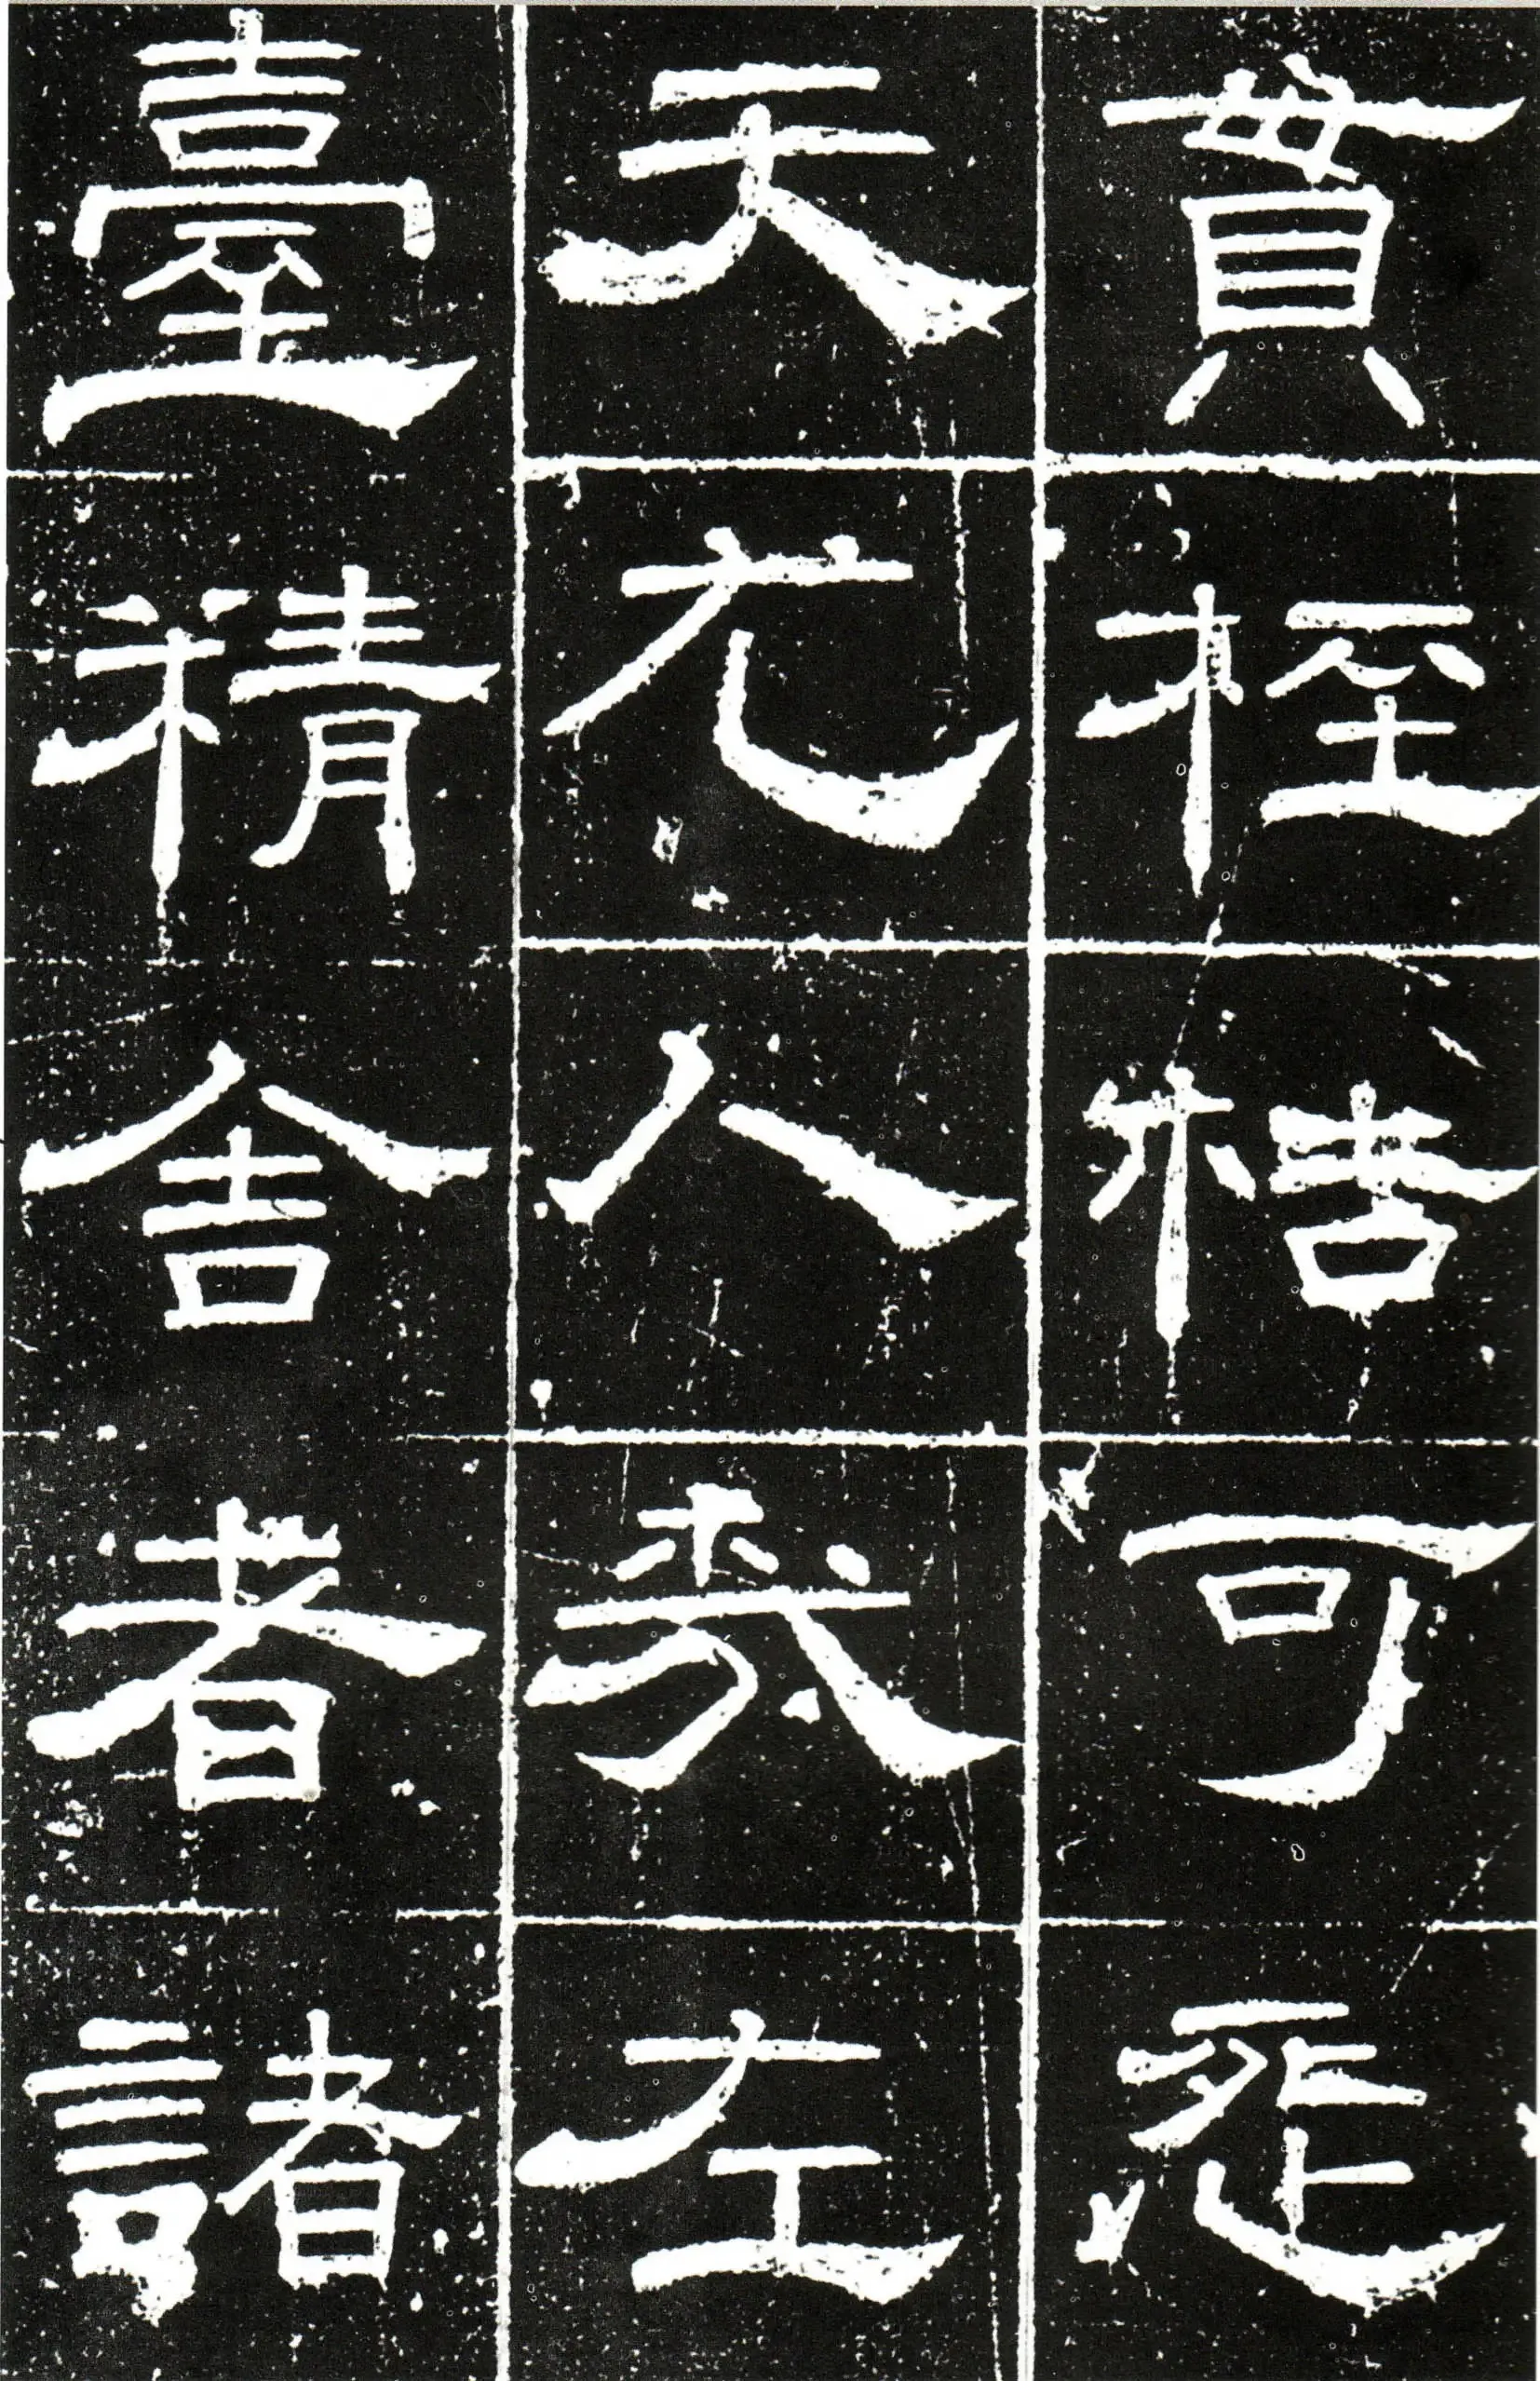 貫桎梏可
天人我左
臺精舍者諸